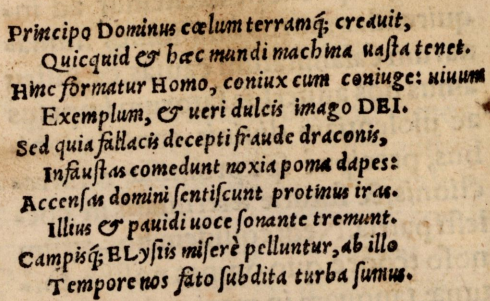 Principo Dominus cœlum terramq́; creauit,
Quicquid & hæc mundi machina uasta tenet.
Hinc formatur Homo, coniux cum coniuge: uiuum
Exemplum, & ueri dulcis imago DEI.
Sed quia fallacis decepti fraude draconis,
Infaustas comedunt noxia poma dapes:
Accensas domini sentiscunt protinus iras.
Illius & pauidi uoce sonante tremunt.
Campisq́; ELysiis miserè pelluntur, ab illo
Tempore nos fato subdita turba sumus.